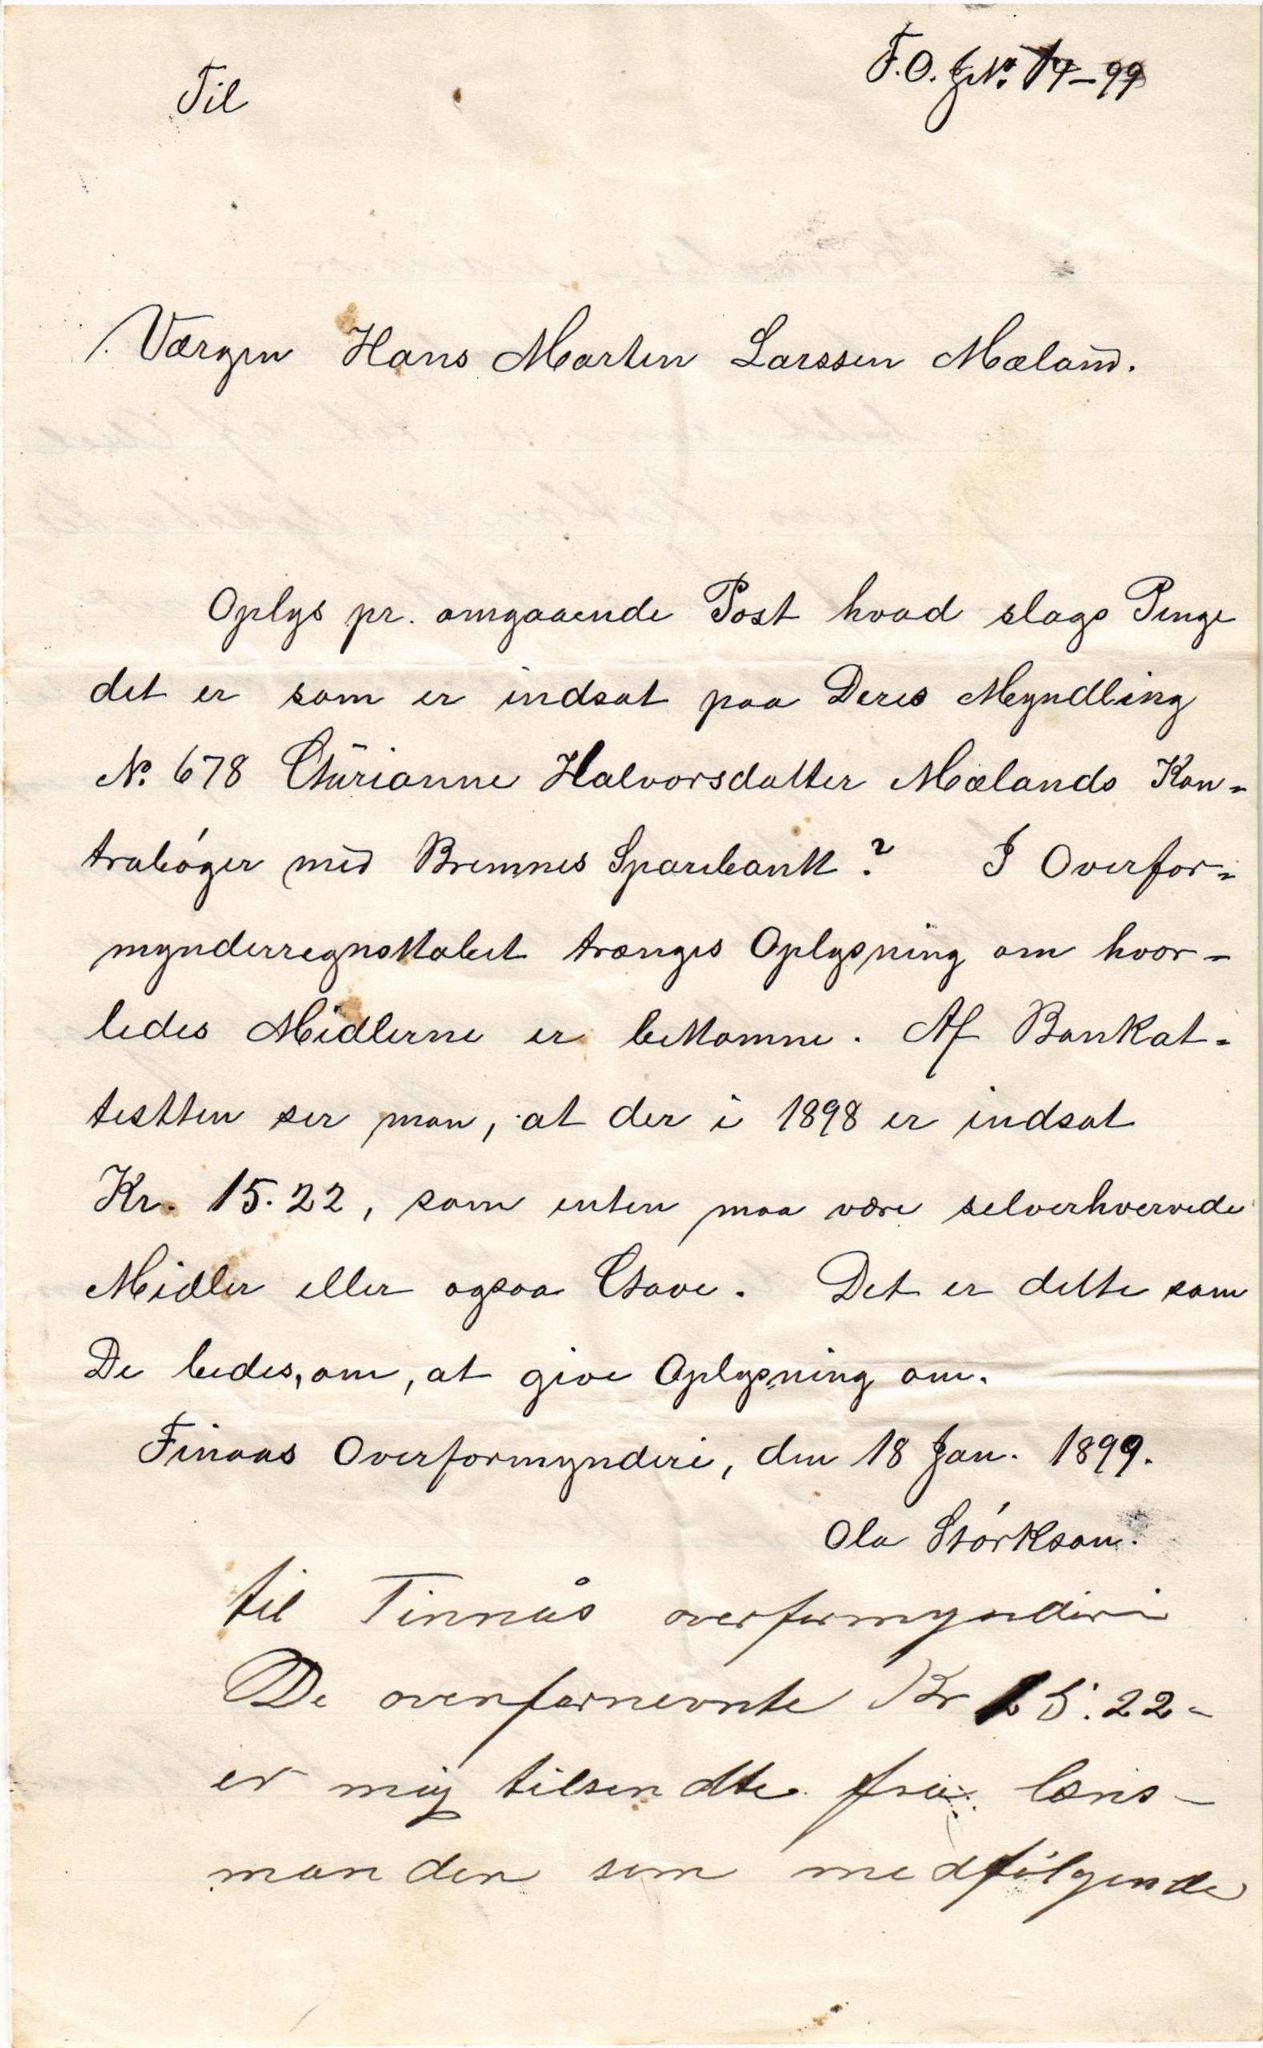 F.O. J.No. 14-99
Til
Værgen Hans Marten Larssen Mæland.
Oplys pr. omgaaende Post hvad slags Penge
det er som er indsat paa Deres Myndling
No. 678 Gurianne Halvorsdatter Mælands Kon-
trabøger med Bremnes Sparebank? I Overfor-
mynderregnskabet trænges Oplysning om hvor-
ledes Midlerne er bekomne. Af Bankat-
testten ser man, at der i 1898 er indsat
Kr. 15.22, som enten maa være selverhvervede
Midler eller ogsaa Gave. Det er dette som
De bedes, om, at give Oplysning om.
Finaas Overformynderi, den 18 Jan. 1899.
Ola Størkson.
til Finnås overformynderi
De ovenfornevnte Kr 15.22-
er mig tilsendte fra læns-
manden som medfølgende